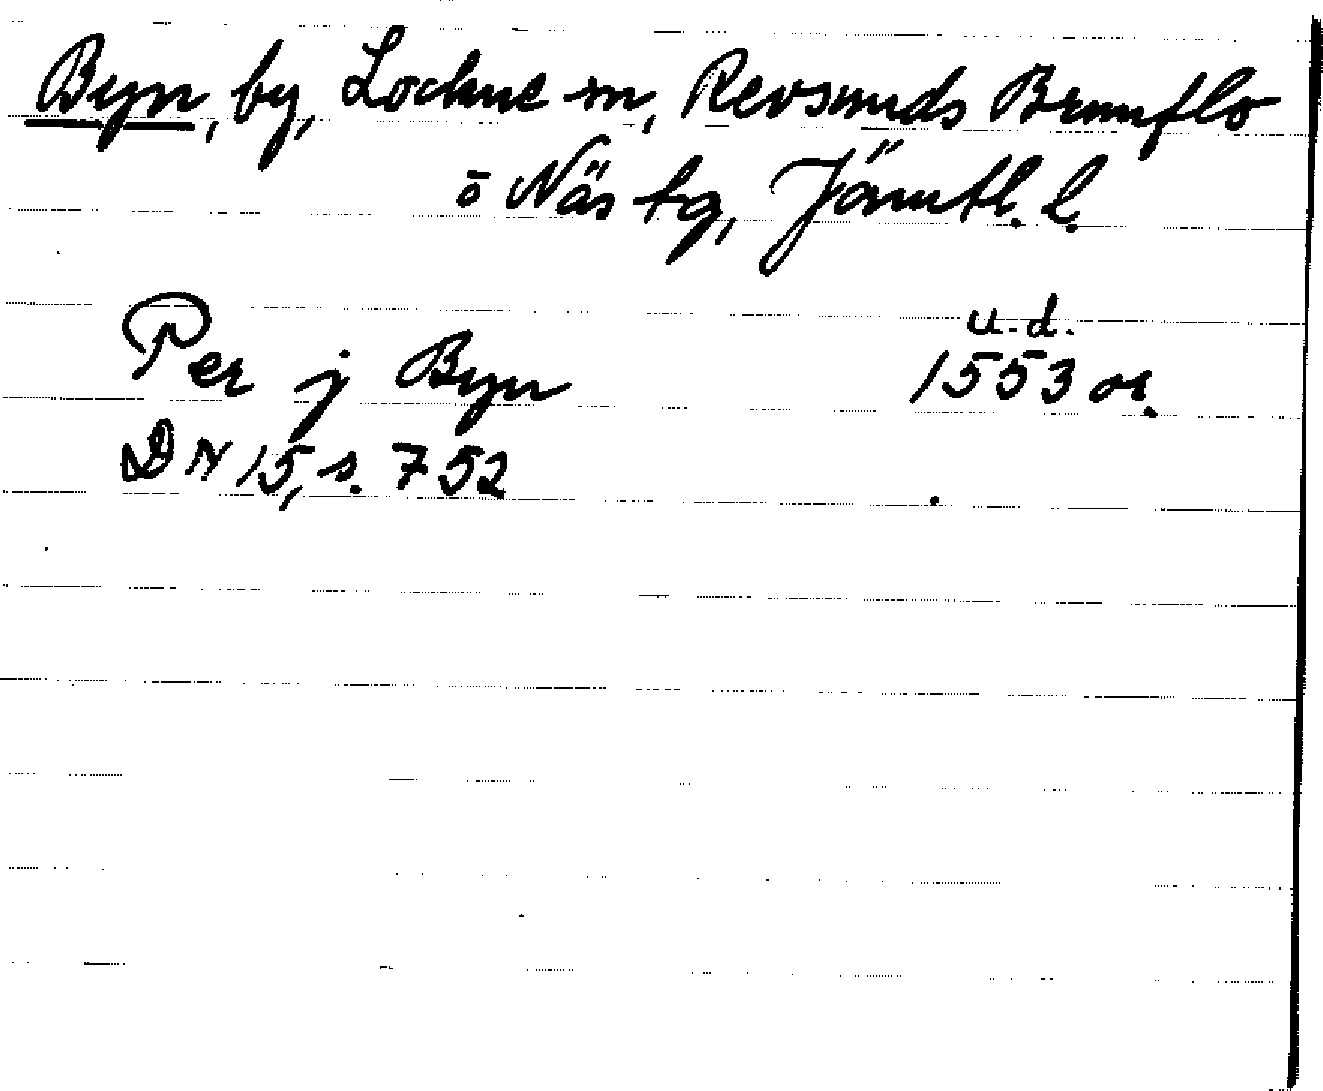 Byn, by, Lockne sn, Revsunds Brunflo
o Näs tg, Jämtl. l.
u. d.
Per j Byn 1553 or.
DN 15, s. 752